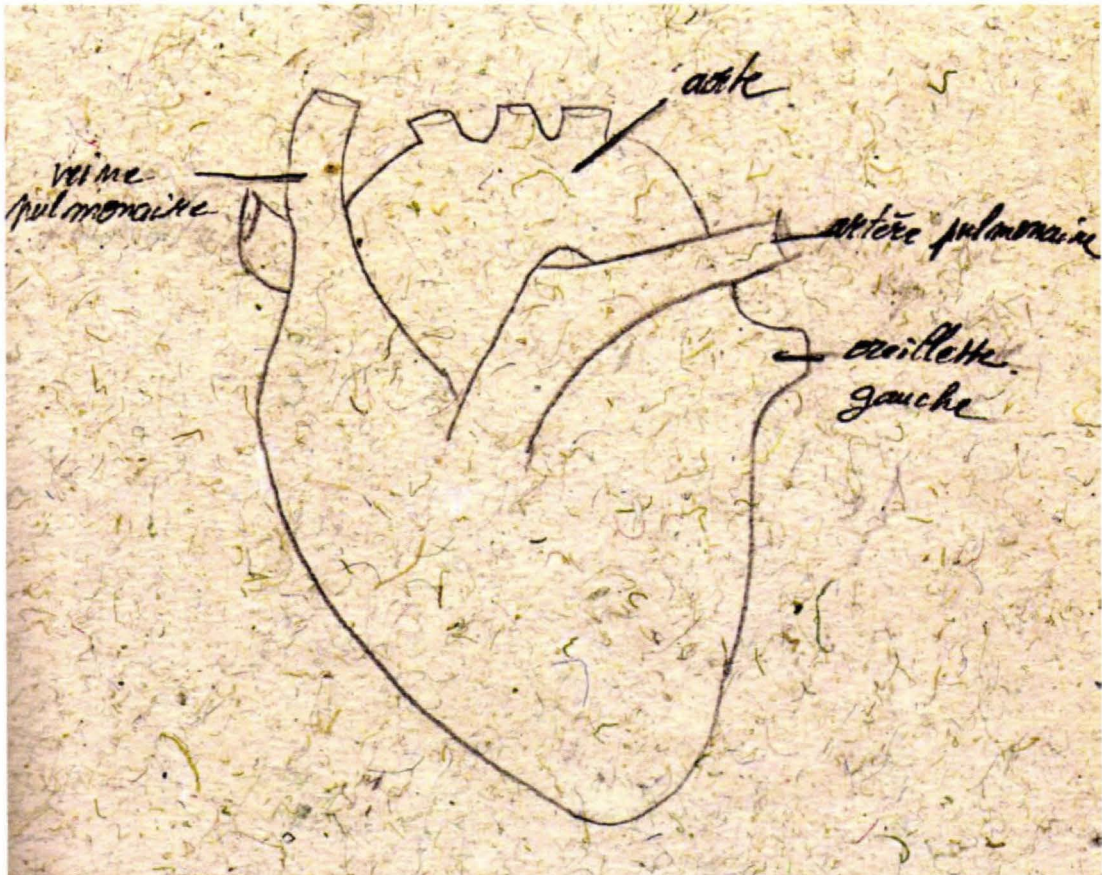 aorte
veine
pulmonaire
artère pulmonaire
oreillette
gauche